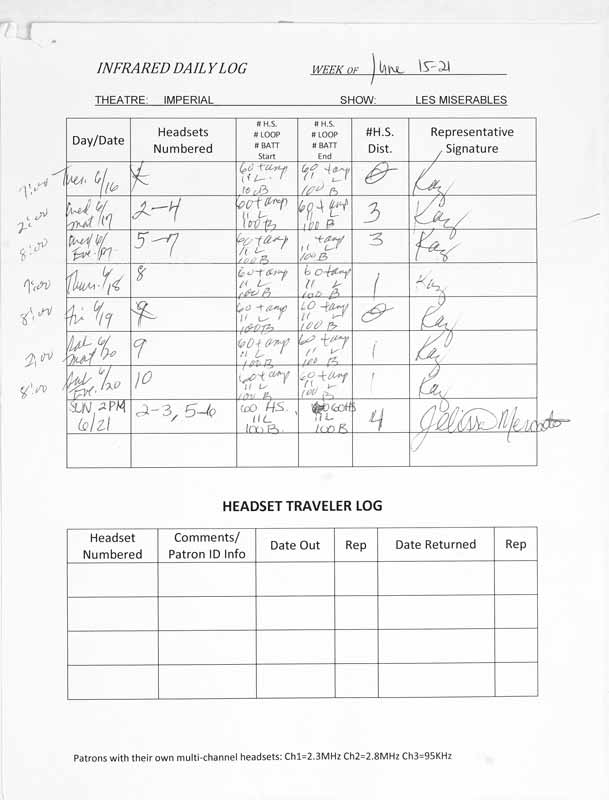 INFRARED DAILY LOG WEEK OF June 15-21
THEATRE: IMPERIAL SHOW: LES MISERABLES
Day/Date
Headsets
Numbered
# H.S.
# LOOP
# BATT
Start
# H.S.
# LOOP
# BATT
End
#H.S.
Dist.
Representative
Signature
7:00 Tues. 6/16 60 + amp 11 L 100 B 60 + amp 11 L 100 B 0 Kay
2:00 Wed 6/17 mat 2-4 60 + amp 11 L 100 B 60 + amp 11 L 100 B 3 Kay
8:00 Wed 6/17 Eve. 5-7 60 + amp 11 L 100 B + amp 11 L 100 B 3 Kay
7:00 Thurs. 6/18 8 60 + amp 11 L 100 B 60 + amp 11 L 100 B 1 Kay
8:00 Fri 6/19 9 60 + amp 11 L 100 B 60 + amp 11 L 100 B 0 Kay
2:00 Sat 6/20 mat 9 60 + amp 11 L 100 B 60 + amp 11 L 100 B 1 Kay
8:00 Sat 6/20 Eve. 10 60 + amp 11 L 100 B 60 + amp 11 L 100 B 1 Kay
SUN, 2PM 6/21 2-3, 5-6 60 HS. 11 L 100 B. 60 HS 11 L 100 B 4
HEADSET TRAVELER LOG
Headset
Numbered
Comments/
Patron ID Info
Date Out
Rep
Date Returned
Rep
Patrons with their own multi-channel headsets: Ch1=2.3MHz Ch2=2.8MHz Ch3=95KHz